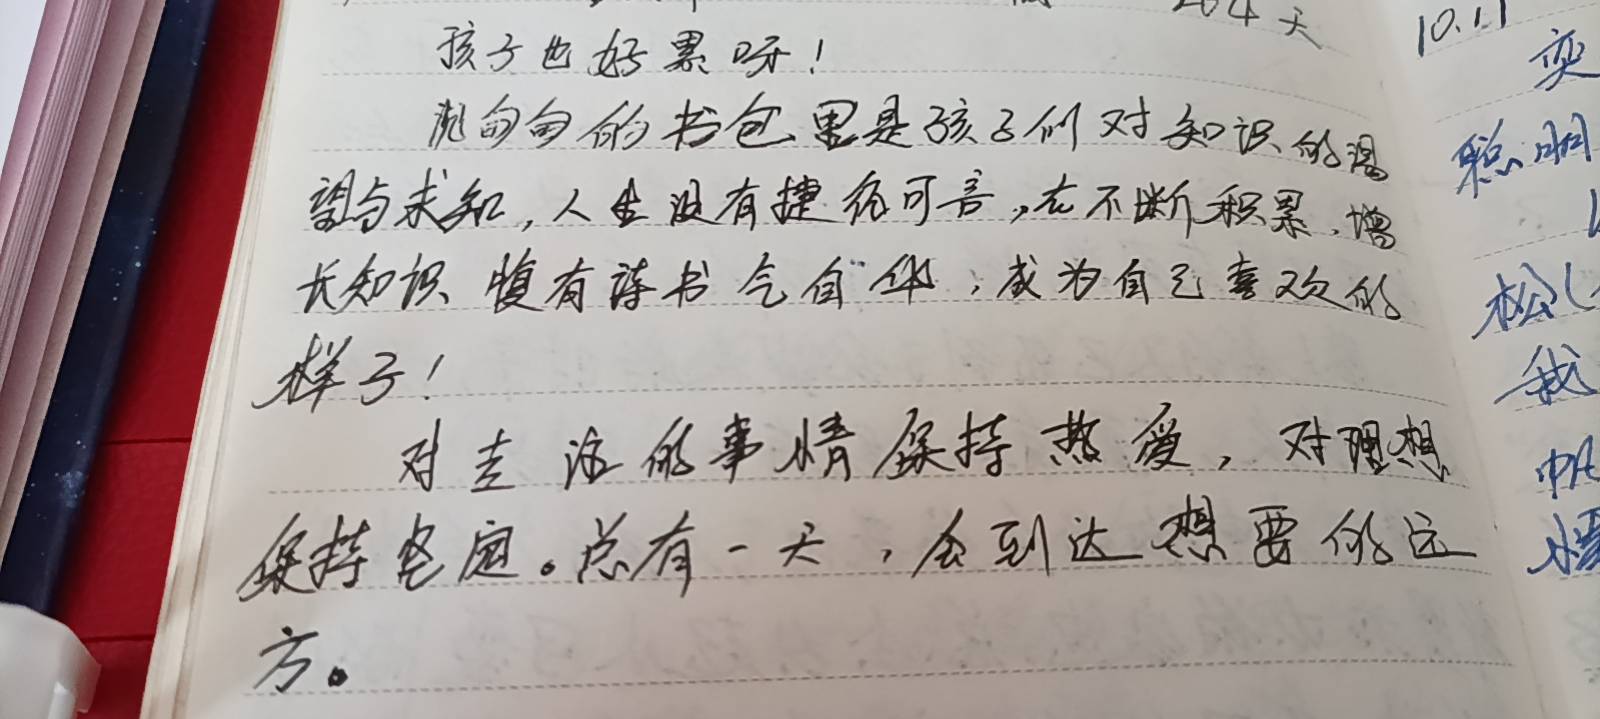 264天
孩子也好累呀！
沉甸甸的书包里是孩子们对知识的渴
望与求知，人生没有捷径可言，在不断积累，增
长知识，腹有诗书气自华，成为自己喜欢的
样子！
对生活的事情保持热爱，对理想
保持笔定。总有一天，会到达想要的远
方。
10.11
聪明
我